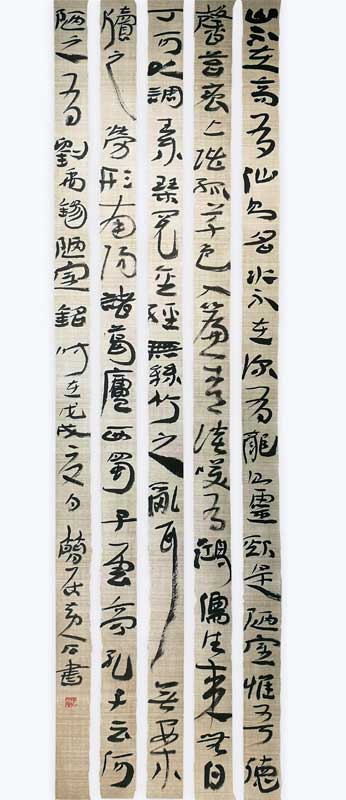 山不在高有仙則名水不在深有龍則靈斯是陋室惟吾德
馨苔痕上階綠草色入簾青談笑有鴻儒往來無白
丁可以調素琴閱金經無絲竹之亂耳無案牘
牘之勞形南陽諸葛廬西蜀子雲亭孔子云何
陋之有劉禹錫陋室銘時在戊戌夏月書